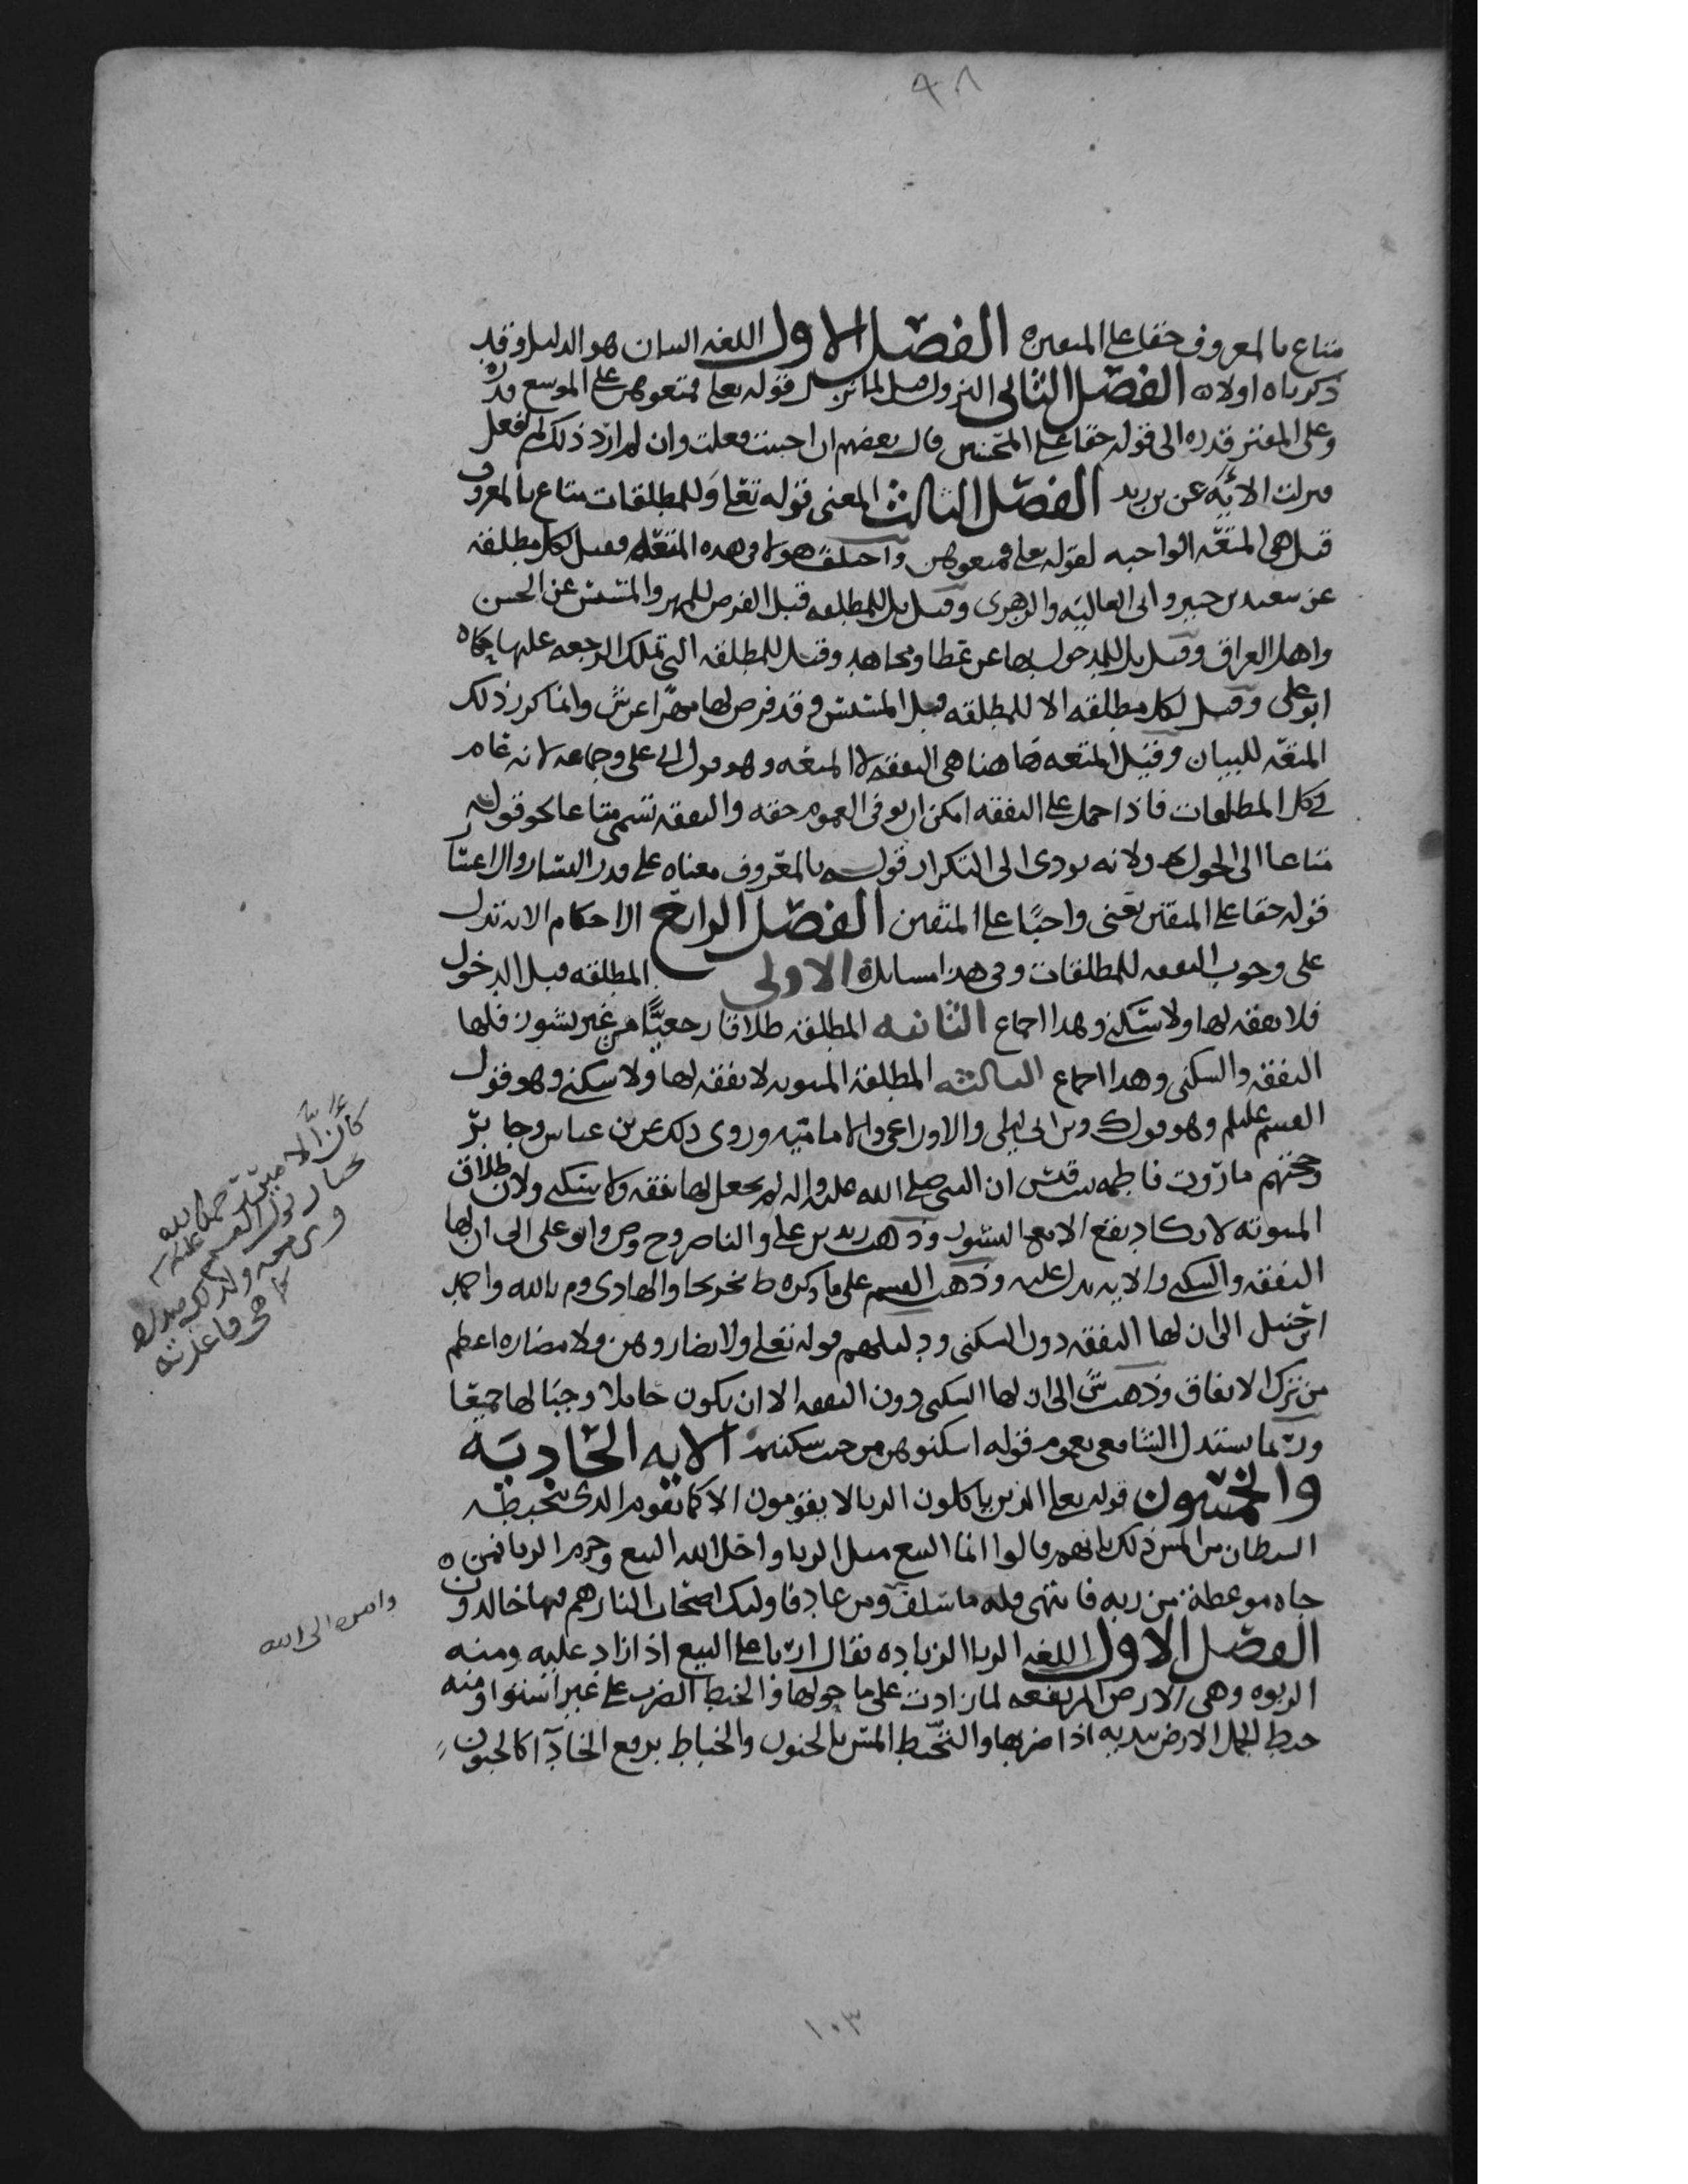 ٩٨
متاع بالمعروف حقا على المتقين ه الفصل الاول اللغه البيان هو الدليل وقد
ذكرناه اولا ه الفصل الثاني النزول قيل لما نزل قوله تعلى فمتعوهن على الموسع قدره
وعلى المقتر قدره الى قوله حقا على المحسنين قال بعضهم ان احببت فعلت وان لم ارد ذلك لم افعل
فنزلت الايه عن بن زيد الفصل الثالث المعنى قوله تعلى وللمطلقات متاع بالمعروف
قيل هي المتعه الواجبه لقوله تعلى فمتعوهن واختلف هولا في هذه المتعه فقيل لكل مطلقه
عن سعيد بن جبير وابي العاليه والزهري وقيل بل للمطلقه قبل الفرض للمهر والمسيس عن الحسن
واهل العراق وقيل بل للمدخول بها عن عطا ومجاهد وقيل للمطلقه التي تملك الرجعه عليها حكاه
ابو على وقيل لكل مطلقه الا للمطلقه قبل المسيس وقد فرض لها مهرا عن ش وانما كرر ذلك
المتعه للبيان وقيل المتعه هاهنا هي النفقه لا المتعه وهو قول ابي على وجماعه لانه عام
في كل المطلقات فاذا حمل على النفقه امكن ان يوفى العموم حقه والنفقه تسمى متاعا نحو قوله
متاعا الى الحول ولانه يودى الى التكرار قوله بالمعروف معناه على قدر اليسار والاعسار
قوله حقا على المتقين يعنى واجبا على المتقين الفصل الرابع الاحكام الايه تدل
على وجوب النفقه للمطلقات وفي هذا مسايل ه الاولى المطلقه قبل الدخول
فلا نفقه لها ولا سكنى وهذا اجماع الثانيه المطلقه طلاقا رجعيا من غير نشوز فلها
النفقه والسكنى وهذا اجماع الثالثه المطلقه المبتوته لا نفقه لها ولا سكنى وهو قول
القسم عليلم وهو قول ك وبن ابي ليلى والاوزاعي والاماميه وروى ذلك عن بن عباس وجابر
وحجتهم ما روت فاطمه بنت قيس ان النبي صلى الله عليه واله لم يجعل لها نفقه ولا سكنى ولان طلاق
المبتوته لا يكاد يقع الا مع النشوز وذهب زيد بن على والناصر وح وص وابو على الى ان لها
النفقه والسكنى والايه تدل عليه وذهب القسم على ما ذكره ط تخريجا والهادى وم بالله واحمد
بن حنبل الى ان لها النفقه دون السكنى ودليلهم قوله تعلى ولا تضاروهن ولا مضاره اعظم
من ترك الانفاق وذهب ش الى ان لها السكنى دون النفقه الا ان يكون حاملا وجبا لها جميعا
وربما يستدل الشافعي بعموم قوله اسكنوهن من حيث سكنتم الايه الحاديه
والخمسون قوله تعلى الذين ياكلون الربا لا يقومون الا كما يقوم الذى يتخبطه
الشيطان من المس ذلك بانهم قالوا انما البيع مثل الربا واحل الله البيع وحرم الربا فمن ه
جاه موعظه من ربه فانتهى فله ما سلف ومن عاد فاوليك اصحاب النار هم فيها خالدون
الفصل الاول اللغه الربا الزياده يقال اربا على البيع اذا زاد عليه ومنه
الربوه وهي الارض المرتفعه لما زادت على ما حولها والخبط الضرب على غير استوا ومنه
خبط الجمل الارض بيديه اذا ضربها والتخبط المس بالجنون والخباط برفع الخا دآ كالجنون
كان الامير رحمه الله
يختار قول القسم عليه
وامره الى الله
١٠٣